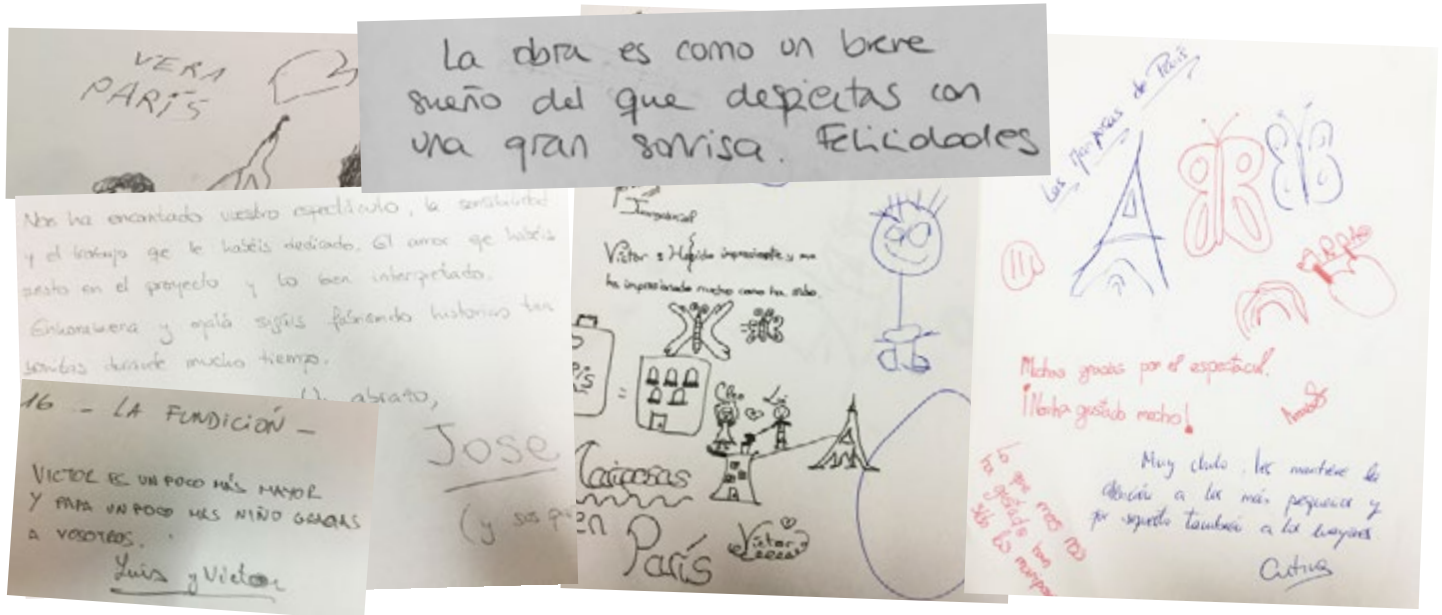 VERA
PARÍS
La obra es como un breve
sueño del que despiertas con
una gran sonrisa. Felicidades
Nos ha encantado vuestro espectáculo, la sensibilidad
y el trabajo que le habéis dedicado. El amor que habéis
puesto en el proyecto y lo bien interpretado.
Enhorabuena y ojalá sigáis fabricando historias tan
bonitas durante mucho tiempo.
Un abrazo,
Jose
(y sus
16 - LA FUNDICIÓN -
VICTOR ES UN POCO MÁS MAYOR
Y PAPA UN POCO MÁS NIÑO GRACIAS
A VOSOTROS.
Luis y Victor
Victor : Ha sido impresionante y me
ha impresionado mucho como ha sido.
Cleo
Mariposas
en
París
Victor
Las Mariposas de París
Muchas gracias por el espectacul.
¡Nos ha gustado mucho!
lo que más nos
ha gustado han
sido las maripo
Muy chulo. les mantiene la
atención a los más pequeños y
por supuesto también a los mayores